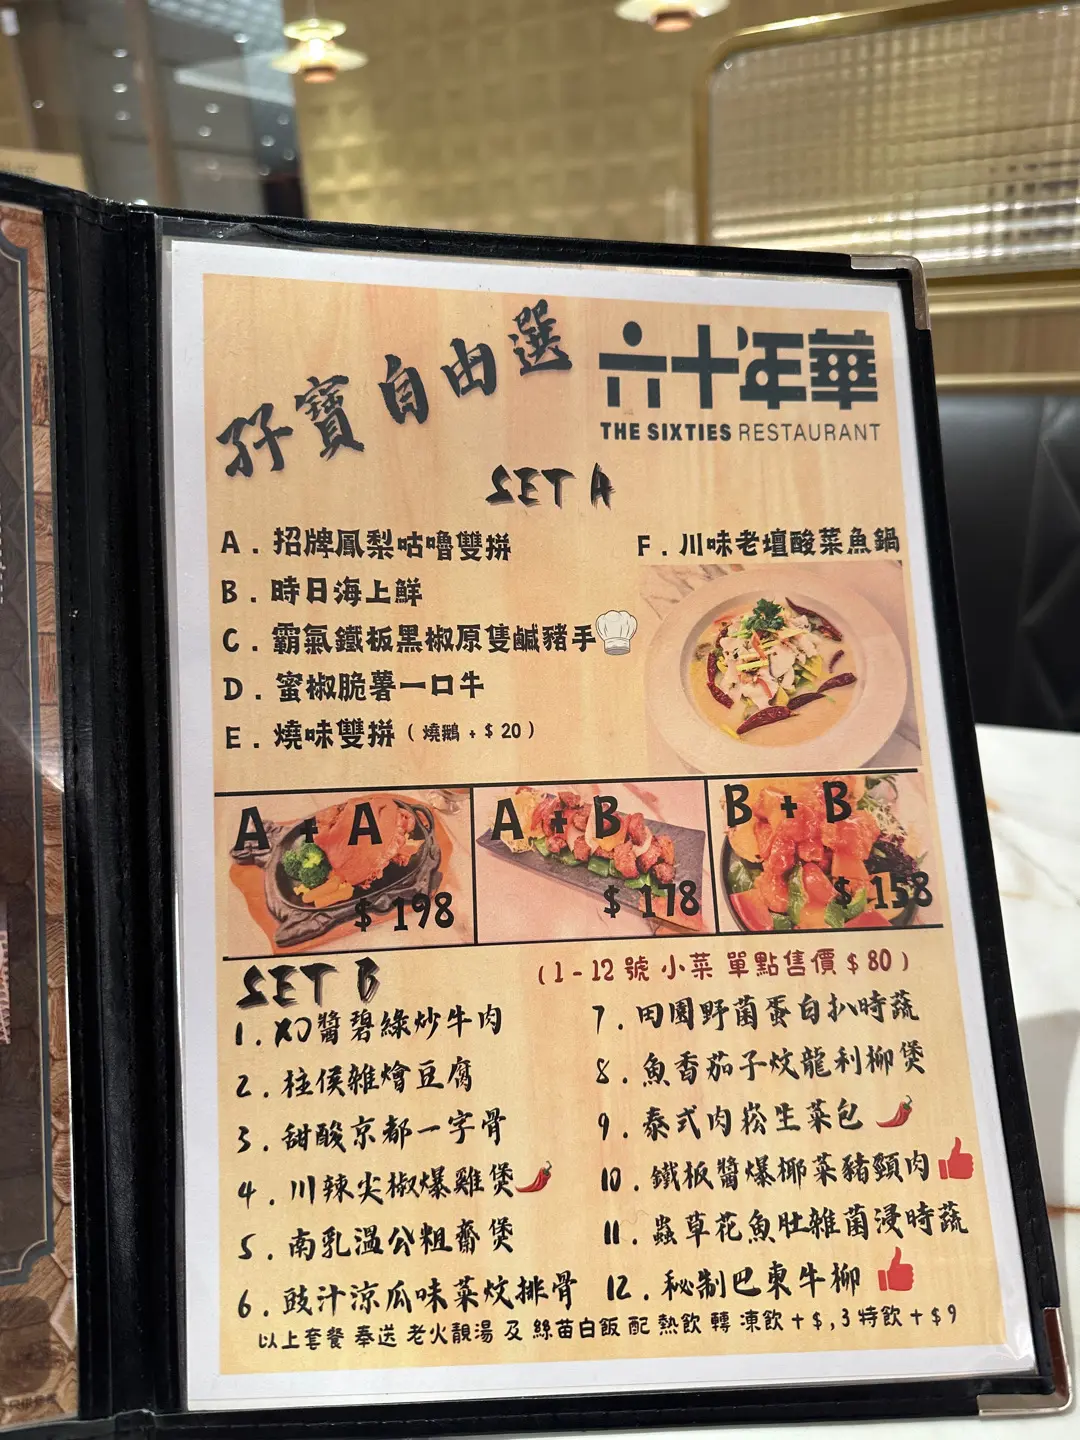 孖寶自由選
六十年華
THE SIXTIES RESTAURANT
SET A
A . 招牌鳳梨咕嚕雙拼
B . 時日海上鮮
C . 霸氣鐵板黑椒原隻鹹豬手
D . 蜜椒脆薯一口牛
E . 燒味雙拼 ( 燒鵝 + $ 20 )
F . 川味老壇酸菜魚鍋
A + A
$ 198
A + B
$ 178
B + B
$ 158
SET B
( 1 - 12 號 小菜 單點售價 $ 80 )
1 . XO醬碧綠炒牛肉
2 . 柱侯雜燴豆腐
3 . 甜酸京都一字骨
4 . 川辣尖椒爆雞煲
5 . 南乳溫公粗齋煲
6 . 豉汁涼瓜味菜炆排骨
7 . 田園野菌蛋白扒時蔬
8 . 魚香茄子炆龍利柳煲
9 . 泰式肉崧生菜包
10 . 鐵板醬爆椰菜豬頸肉
11 . 蟲草花魚肚雜菌浸時蔬
12 . 秘制巴東牛柳
以上套餐 奉送 老火靚湯 及 絲苗白飯 配 熱飲 轉 凍飲 + $ , 3 特飲 + $ 9